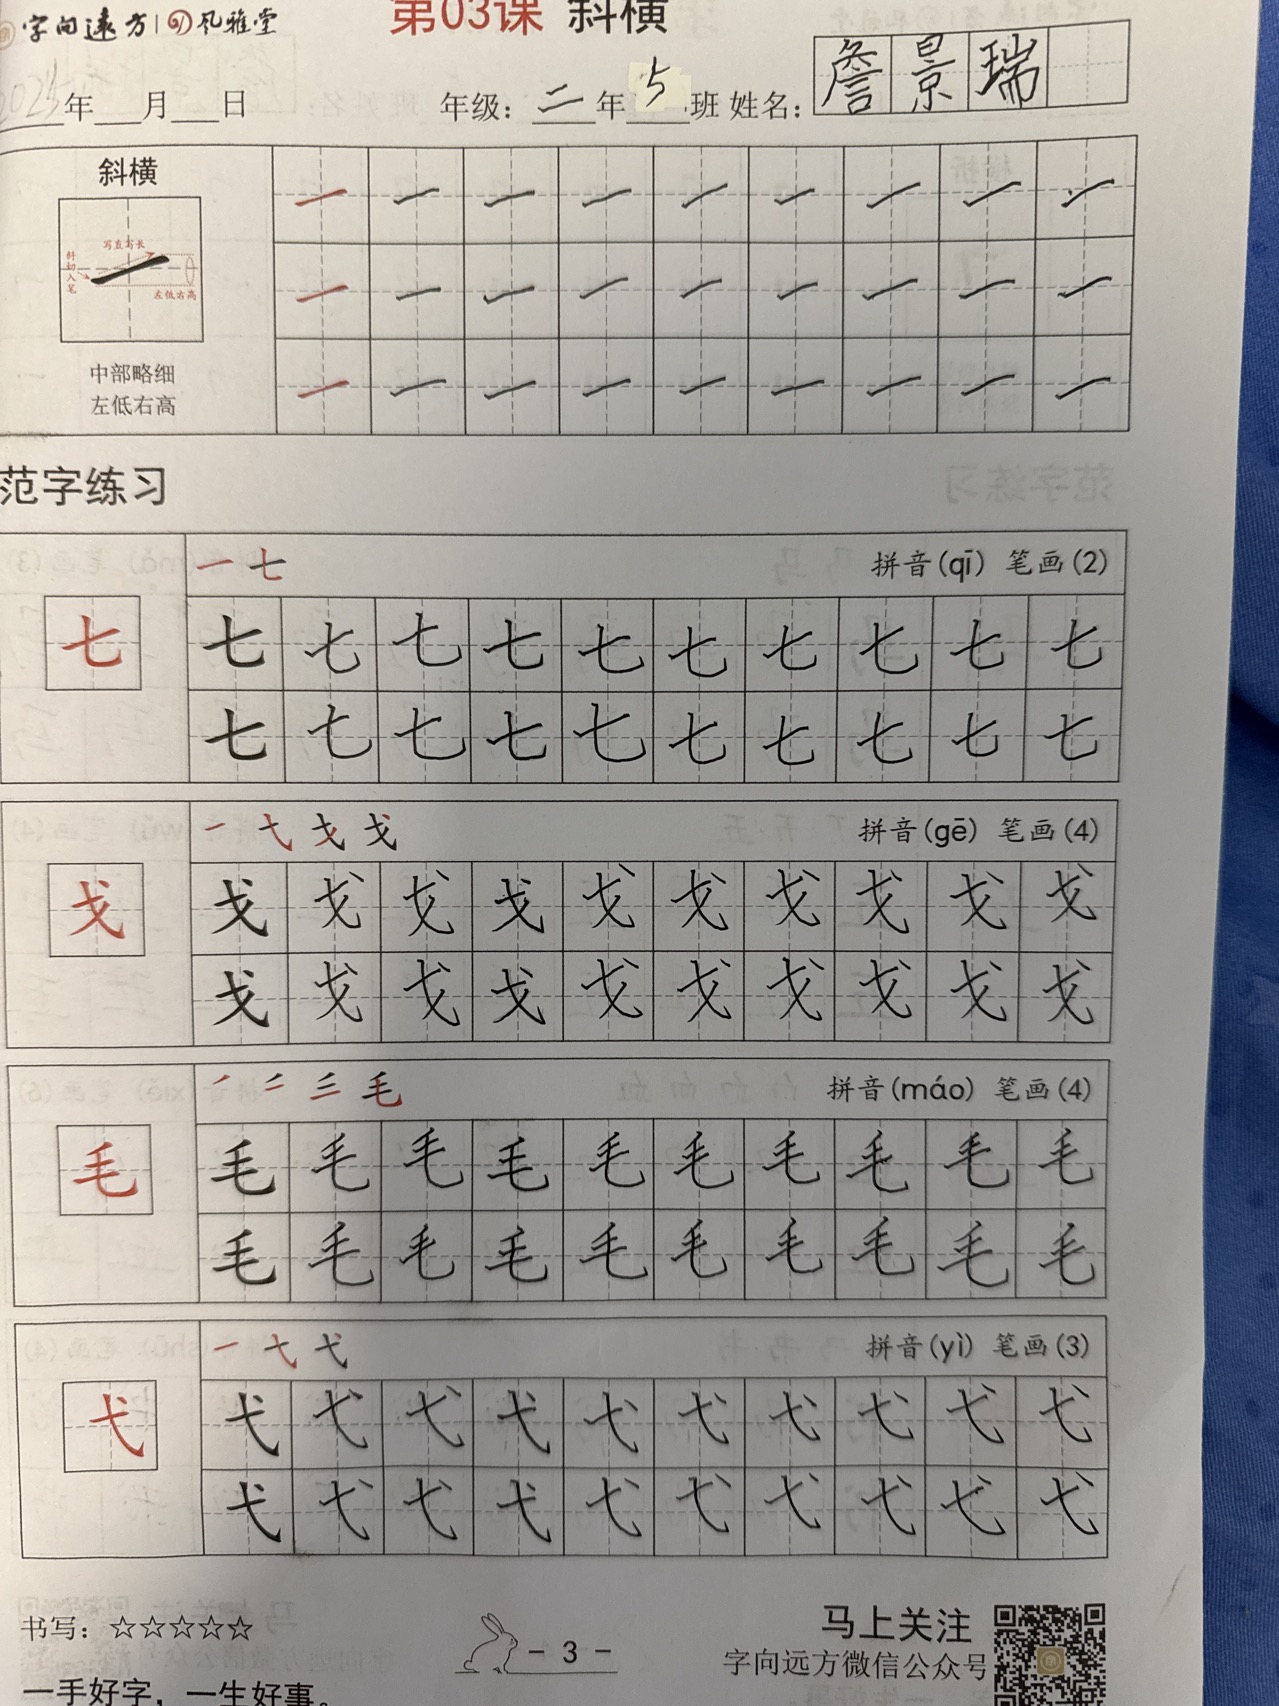 字向远方 风雅堂
第03课 斜横
2025年 月 日 年级：二年5班 姓名：詹景瑞
斜横
写直写长
斜切入笔
左低右高
中部略细
左低右高
一 一 一 一 一 一 一 一 一
一 一 一 一 一 一 一 一 一
一 一 一 一 一 一 一 一 一
范字练习
一 七 拼音(qī) 笔画(2)
七
七 七 七 七 七 七 七 七 七 七
七 七 七 七 七 七 七 七 七 七
一 弋 戈 戈 拼音(gē) 笔画(4)
戈
戈 戈 戈 戈 戈 戈 戈 戈 戈 戈
戈 戈 戈 戈 戈 戈 戈 戈 戈 戈
毛 拼音(máo) 笔画(4)
毛
毛 毛 毛 毛 毛 毛 毛 毛 毛 毛
毛 毛 毛 毛 毛 毛 毛 毛 毛 毛
一 弋 拼音(yì) 笔画(3)
弋
弋 弋 弋 弋 弋 弋 弋 弋 弋 弋
弋 弋 弋 弋 弋 弋 弋 弋 弋 弋
书写：☆☆☆☆☆
- 3 -
马上关注
字向远方微信公众号
一手好字，一生好事。